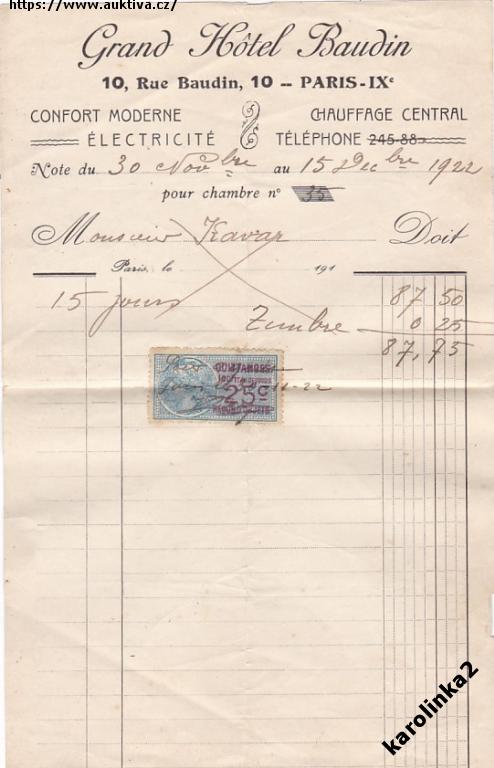 https://www.auktiva.cz/
Grand Hôtel Baudin
10, Rue Baudin, 10 -- PARIS-IXe
CONFORT MODERNE CHAUFFAGE CENTRAL
ÉLECTRICITÉ TÉLÉPHONE 245-88
Note du 30 Novbre au 15 Decbre 1922
pour chambre no 35
Monsieur Kavar Doit
Paris, le 191
15 jours 87 50
Timbre 0 25
87,75
QUITTANCES
25c
22
karolinka2